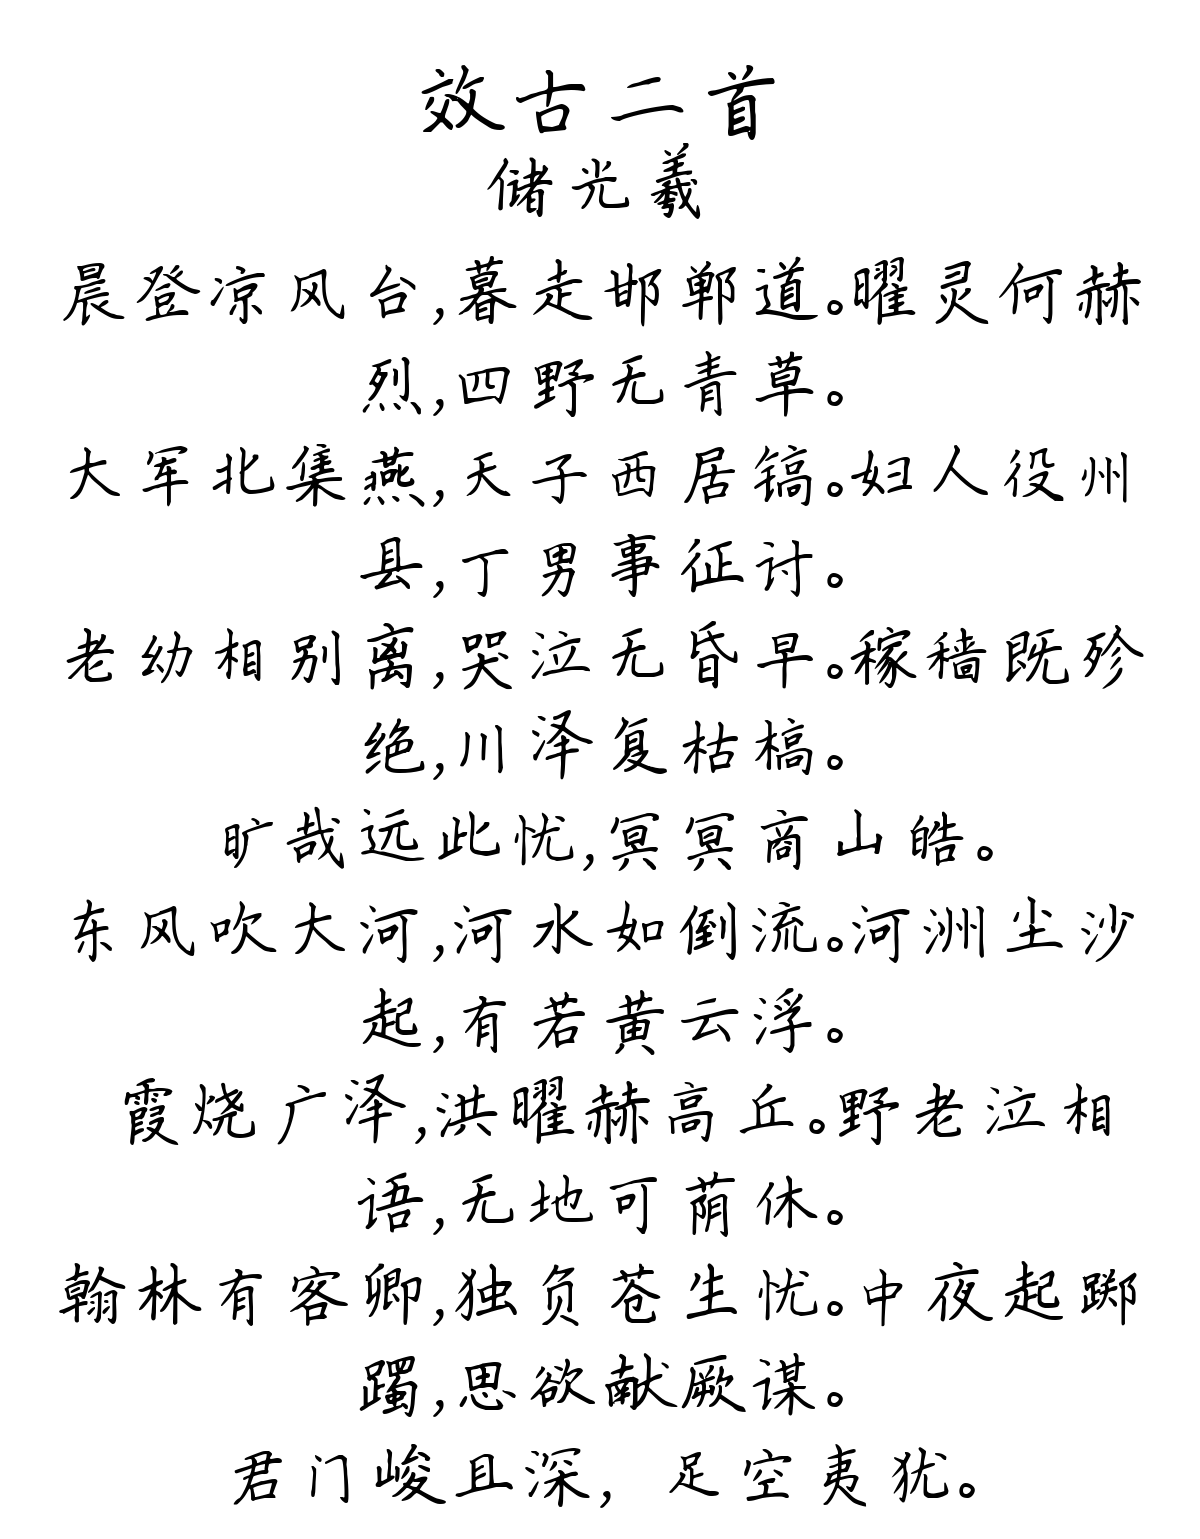 效古二首
储光羲
晨登凉风台,暮走邯郸道。曜灵何赫
烈,四野无青草。
大军北集燕,天子西居镐。妇人役州
县,丁男事征讨。
老幼相别离,哭泣无昏早。稼穑既殄
绝,川泽复枯槁。
旷哉远此忧,冥冥商山皓。
东风吹大河,河水如倒流。河洲尘沙
起,有若黄云浮。
霞烧广泽,洪曜赫高丘。野老泣相
语,无地可荫休。
翰林有客卿,独负苍生忧。中夜起踯
躅,思欲献厥谋。
君门峻且深, 足空夷犹。